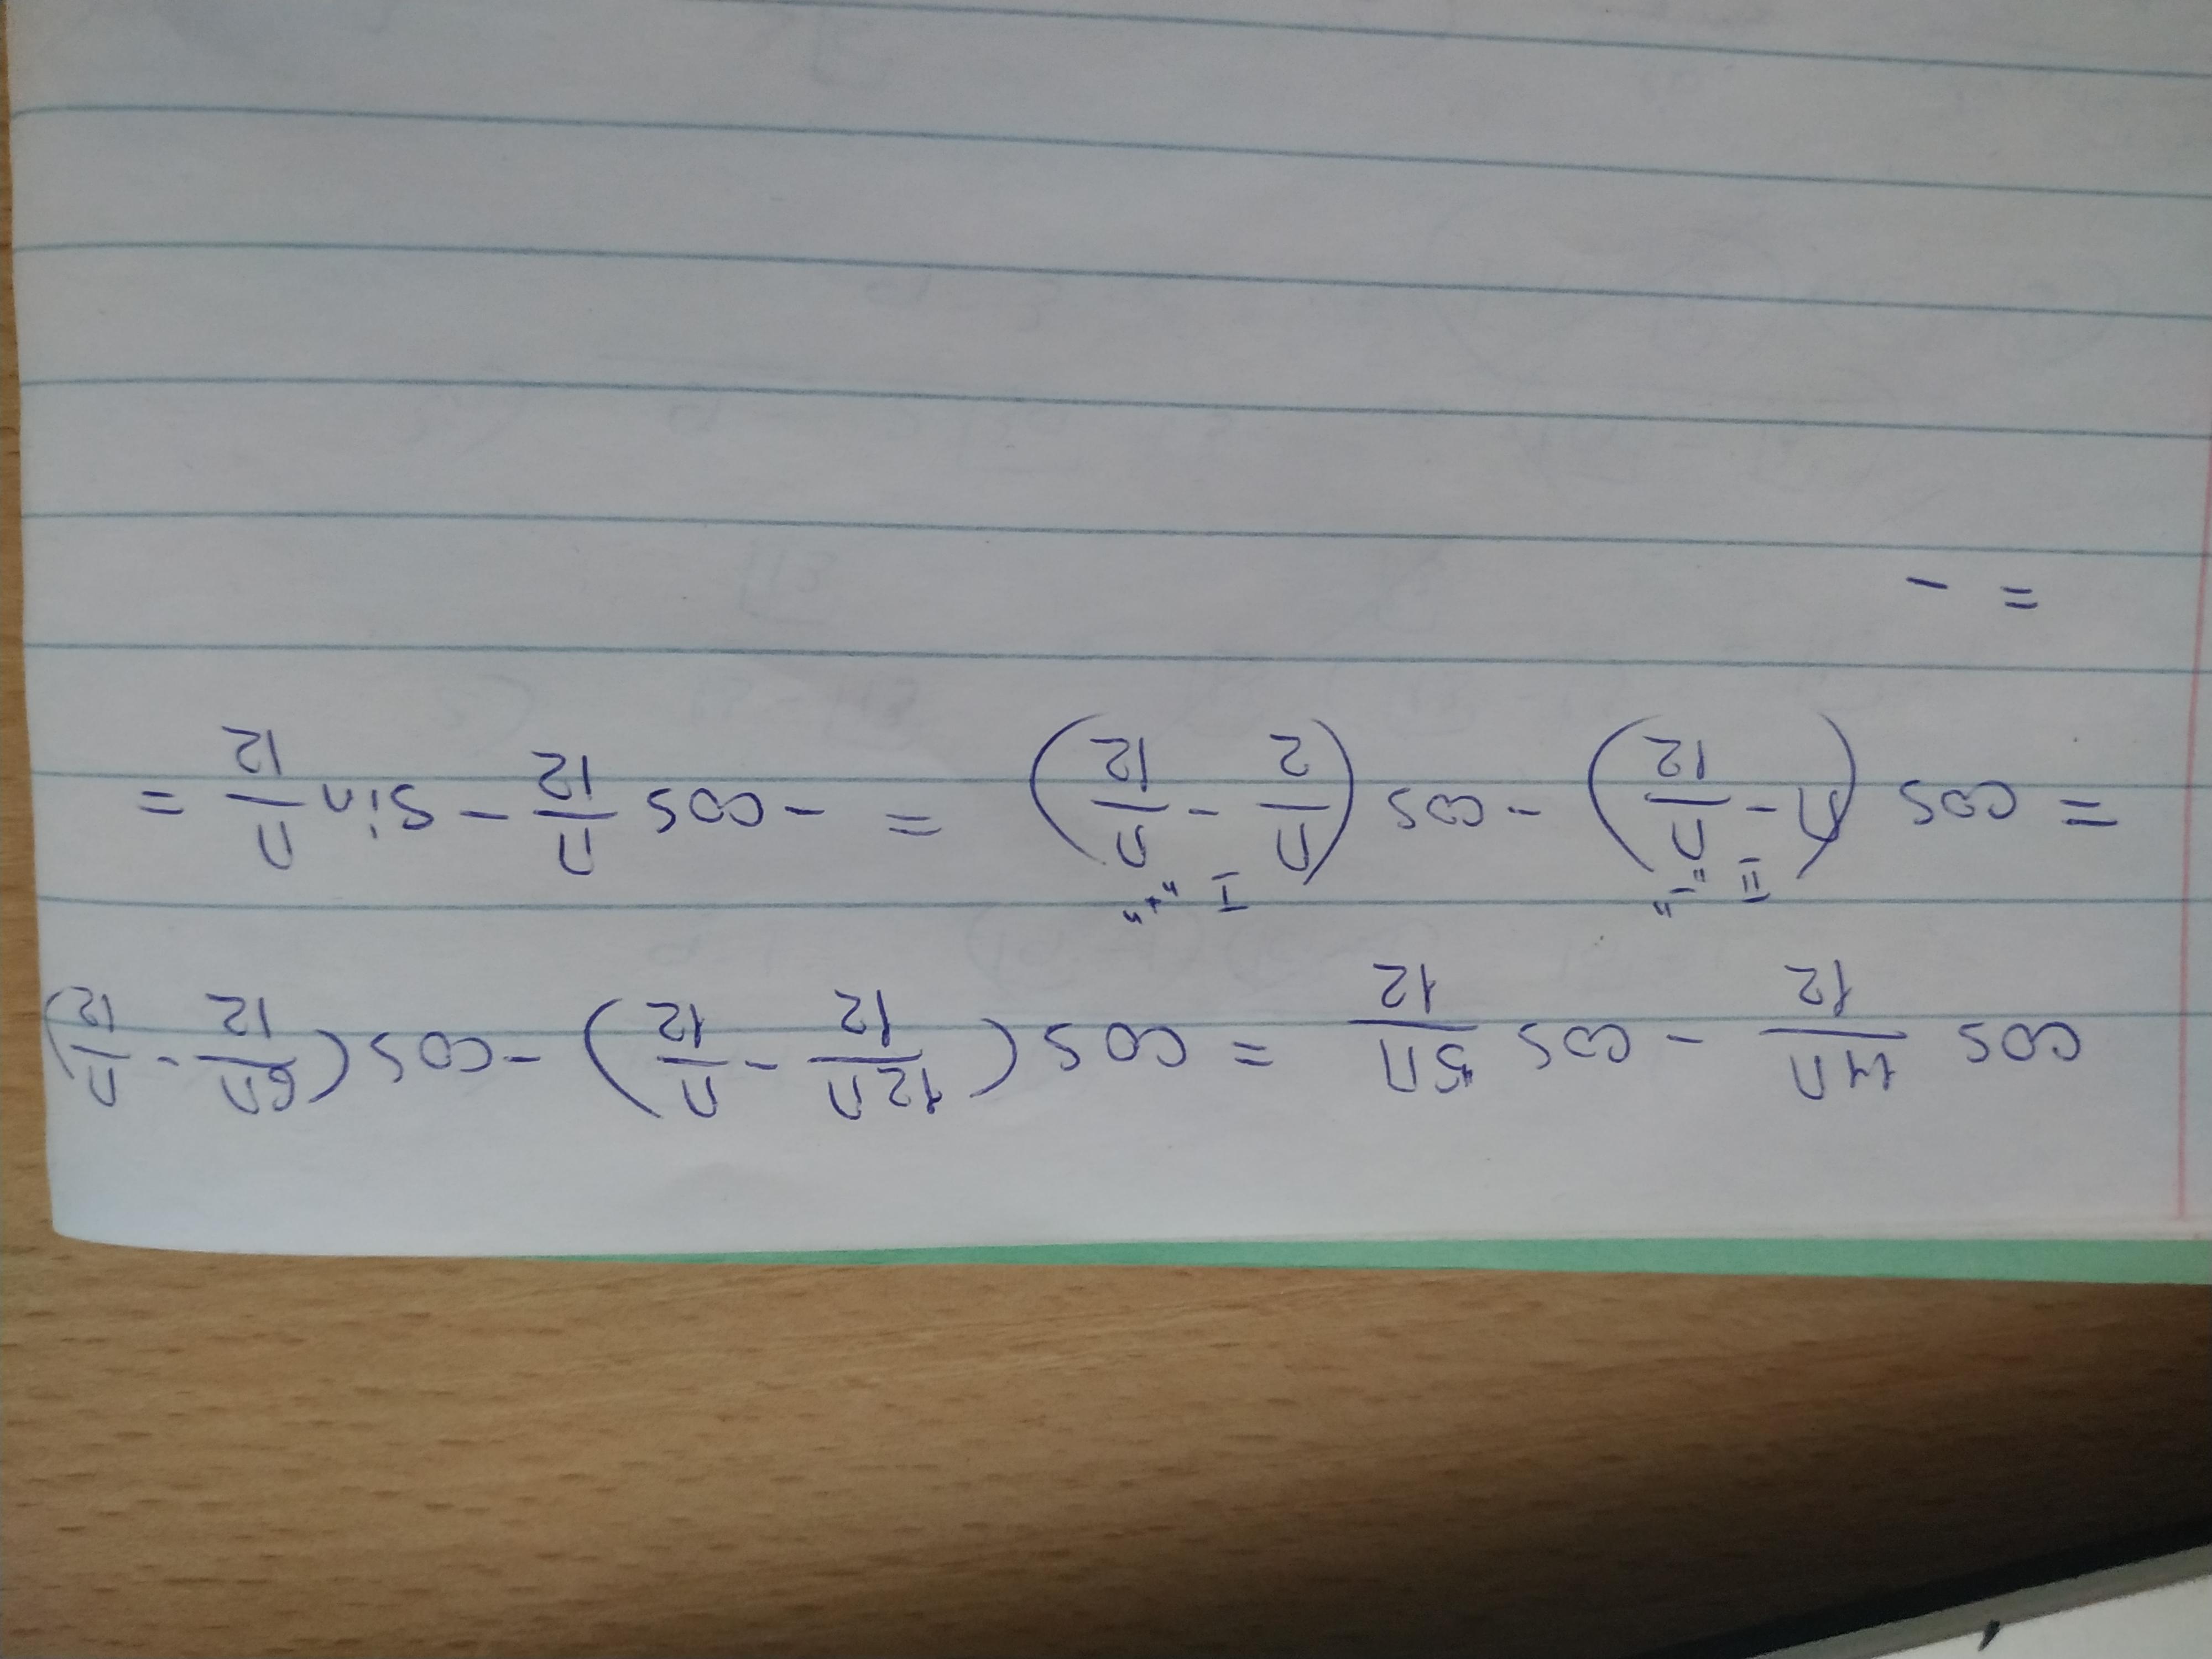 cos 11π/12 - cos 5π/12 = cos (12π/12 - π/12) - cos (6π/12 - π/12)
II "-" I "+"
= cos (π - π/12) - cos (π/2 - π/12) = - cos π/12 - sin π/12 =
= -